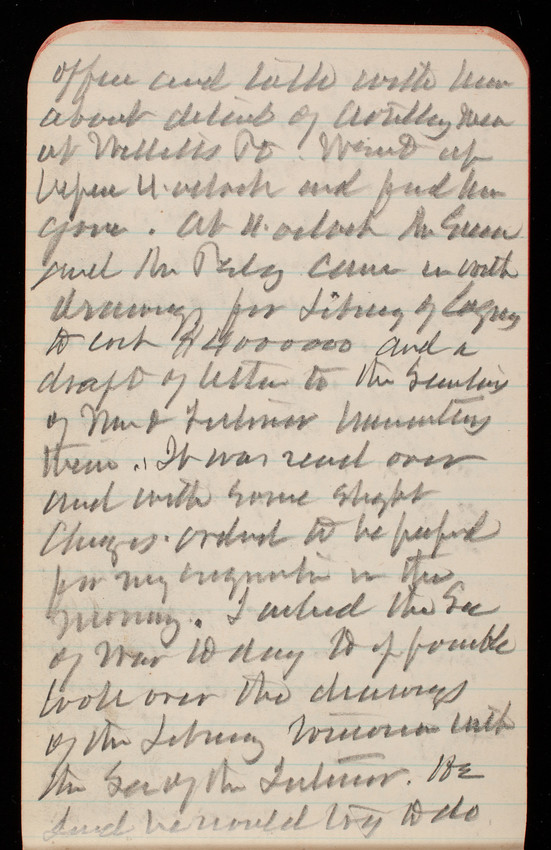 office and talk with him
about detail of Artillery men
at Willetts Pt. Went up
before 4 oclock and find him
gone. At 4 oclock Mr Green
and Mr Pelz came in with
drawings for Library of Congress
to cost $4000000 and a
draft of letter to the Secretaries
of War & Interior transmitting
them. It was read over
and with some slight
Changes ordered to be prepared
for my signature in the
morning. I asked the Sec
of War to day to if possible
look over the drawings
of the Library tomorrow with
the Sec of the Interior. He
said he would try to do